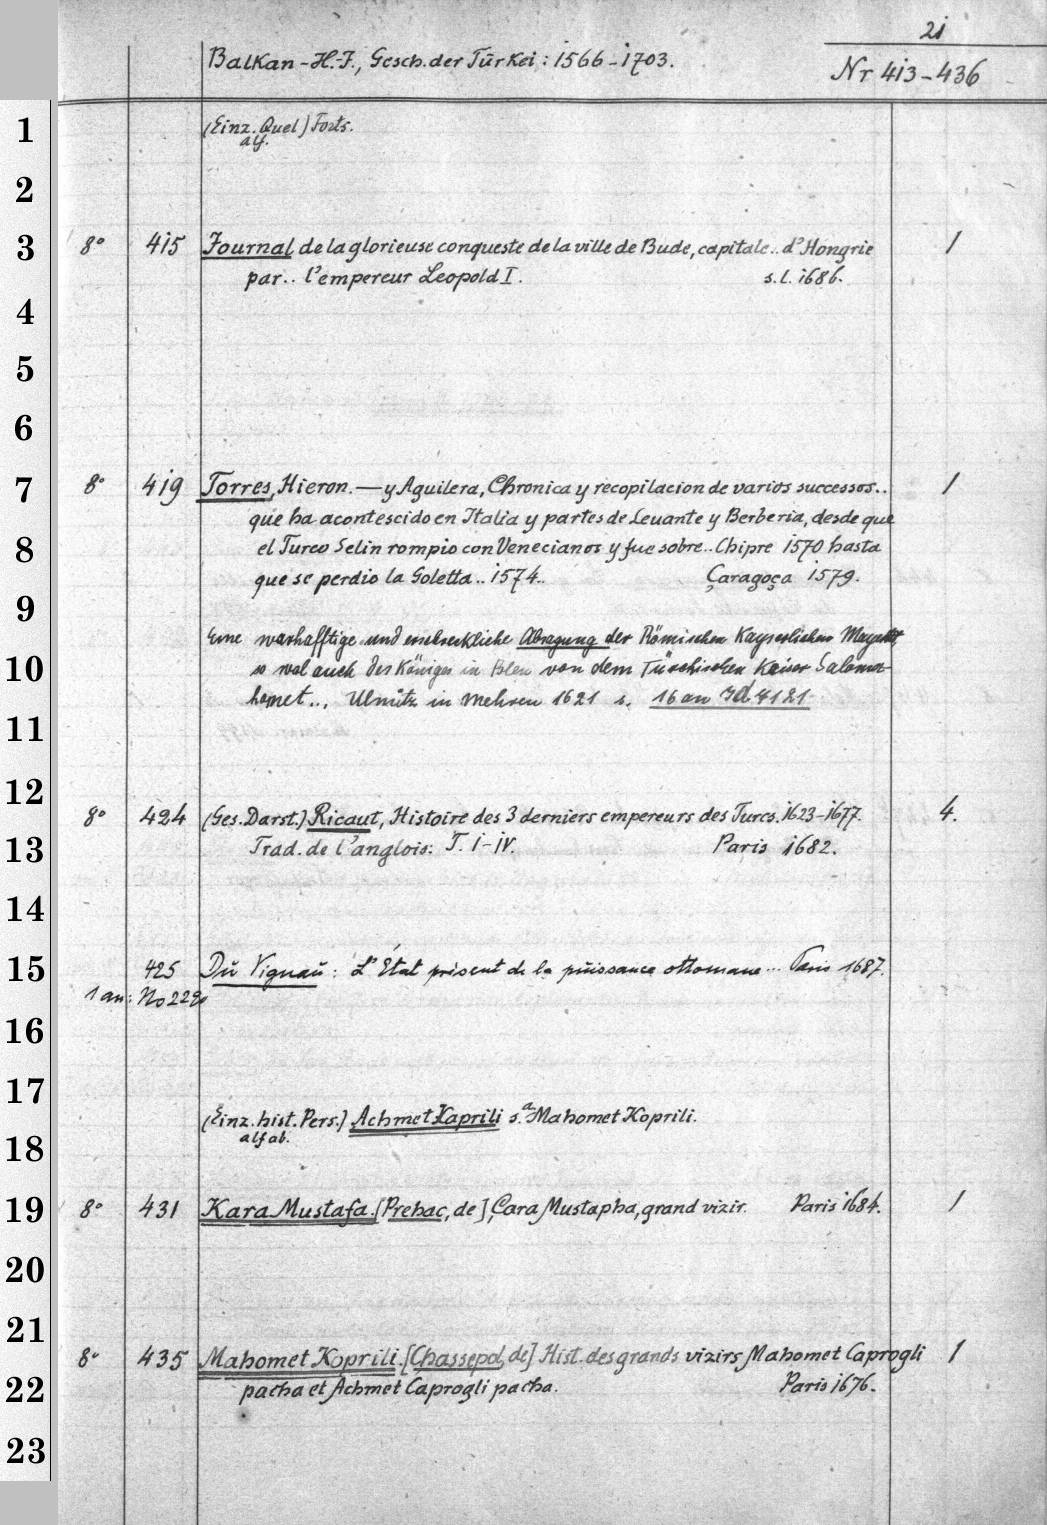 21
Balkan-H.-I., Gesch. der Türkei: 1566-1703.
Nr 413-436
1 (Einz. Quel) Forts.
alf.
2
3 8° 415 Journal de la glorieuse conqueste de la ville de Bude, capitale.. d'Hongrie 1
par.. l'empereur Leopold I. s.l. 1686.
4
5
6
7 8° 419 Torres, Hieron. — y Aguilera, Chronica y recopilacion de varios successos.. 1
que ha acontescido en Italia y partes de Levante y Berberia, desde que
8 el Turco Selin rompio con Venecianos y fue sobre.. Chipre 1570 hasta
que se perdio la Goletta.. 1574.. Çaragoça 1579.
9
Eine warhafftige und erschreckliche Absagung der Römischen Kayserlichen Mayestet,
10 so wol auch des Königes in Polen von dem Türckischen Keiser Saloma-
homet.., Ulmütz in Mehren 1621 s. 16 an 3d 4121
11
12
8° 424 (Ges. Darst.) Ricaut, Histoire des 3 derniers empereurs des Turcs. 1623-1677. 4.
13 Trad. de l'anglois: T. I-IV. Paris 1682.
14
15 425 Du Vignau: L'État présent de la puissance ottomane... Paris 1687.
1 an: No 229
16
17
(Einz. hist. Pers.) Achmet Kaprili s.a Mahomet Koprili.
alfab.
18
19 8° 431 Kara Mustafa. [Prehac, de], Cara Mustapha, grand vizir. Paris 1684. 1
20
21
8° 435 Mahomet Koprili. [Chassepol, de] Hist. des grands vizirs Mahomet Caprogli 1
22 pacha et Achmet Caprogli pacha. Paris 1676.
23